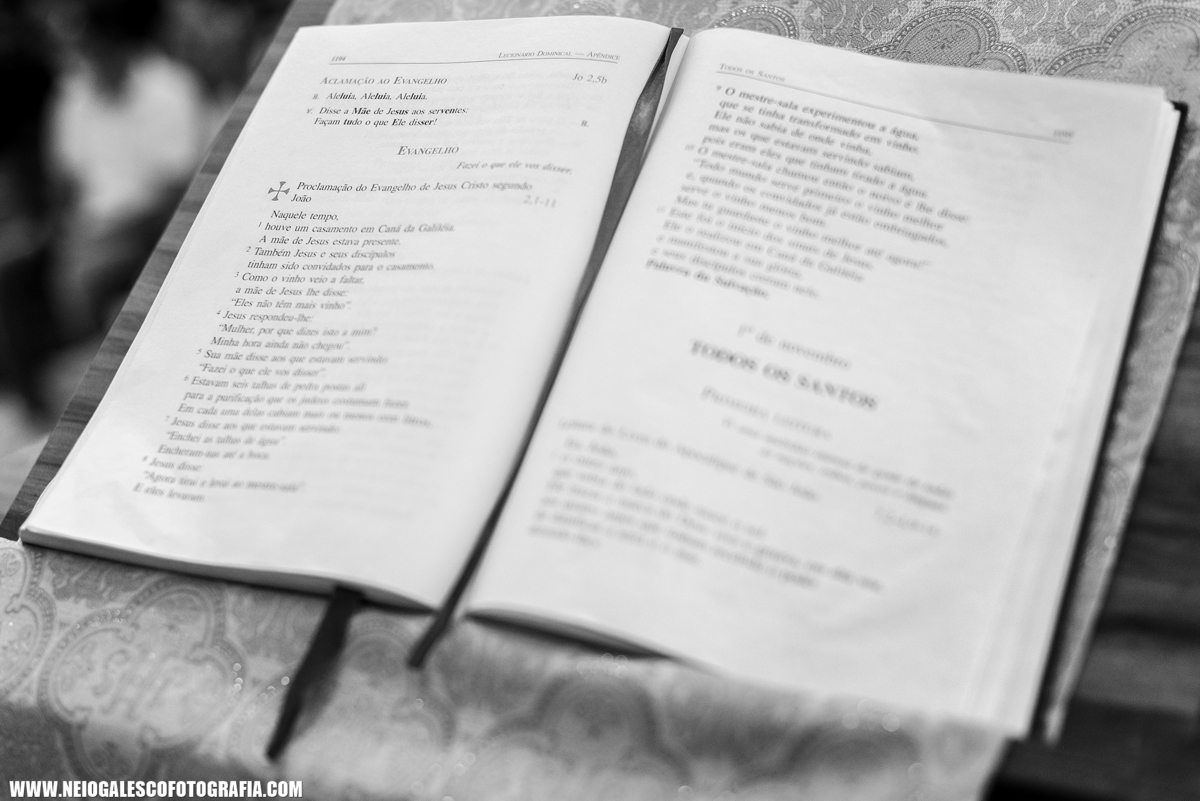 1194
LECIONÁRIO DOMINICAL — APÊNDICE
ACLAMAÇÃO AO EVANGELHO
Jo 2,5b
R. Aleluia, Aleluia, Aleluia.
V. Disse a Mãe de Jesus aos serventes:
Façam tudo o que Ele disser!
R.
EVANGELHO
Fazei o que ele vos disser.
Proclamação do Evangelho de Jesus Cristo segundo
João
2,1-11
Naquele tempo,
1 houve um casamento em Caná da Galiléia.
A mãe de Jesus estava presente.
2 Também Jesus e seus discípulos
tinham sido convidados para o casamento.
3 Como o vinho veio a faltar,
a mãe de Jesus lhe disse:
"Eles não têm mais vinho".
4 Jesus respondeu-lhe:
"Mulher, por que dizes isto a mim?
Minha hora ainda não chegou".
5 Sua mãe disse aos que estavam servindo:
"Fazei o que ele vos disser".
6 Estavam seis talhas de pedra postas ali
para a purificação que os judeus costumam fazer.
Em cada uma delas cabiam mais ou menos cem litros.
7 Jesus disse aos que estavam servindo:
"Enchei as talhas de água".
Encheram-nas até a boca.
8 Jesus disse:
"Agora tirai e levai ao mestre-sala".
E eles levaram.
TODOS OS SANTOS
9 O mestre-sala experimentou a água,
que se tinha transformado em vinho.
Ele não sabia de onde vinha,
mas os que estavam servindo sabiam,
pois eram eles que tinham tirado a água.
10 O mestre-sala chamou então o noivo e lhe disse:
"Todo mundo serve primeiro o vinho melhor
e, quando os convidados já estão embriagados,
serve o vinho menos bom.
Mas tu guardaste o vinho melhor até agora!"
11 Este foi o início dos sinais de Jesus.
Ele o realizou em Caná da Galiléia
e manifestou a sua glória,
e seus discípulos creram nele.
Palavra da Salvação.
1º de novembro
TODOS OS SANTOS
PRIMEIRA LEITURA
WWW.NEIOGALESCOFOTOGRAFIA.COM